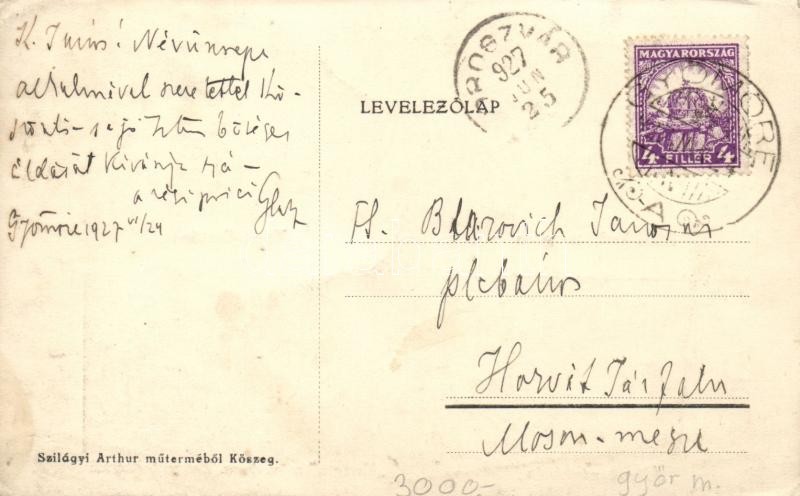 K. János! Névünnepe
alkalmával szeretettel kö-
szönti s a jó Isten bőséges
áldását kívánja rá-
a régi
Gyömöre 1927 VI/24
Szilágyi Arthur műterméből Kőszeg.
LEVELEZŐLAP
ROSZVÁR
927
JUN
25
MAGYARORSZÁG
4 FILLÉR 4
GYÖMÖRE
János
plébános
Horvát Járfalu
Moson-megye
3000.-
győr m.